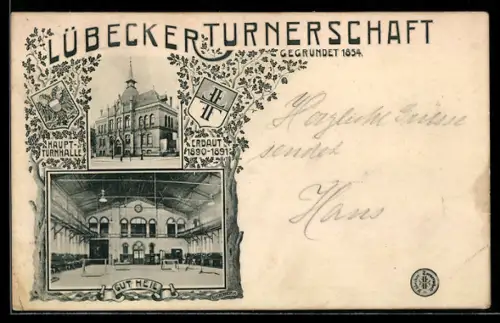 LÜBECKER TURNERSCHAFT
GEGRÜNDET 1854.
HAUPT-
TURNHALLE
ERBAUT
1890-1891
Herzliche Grüsse
sendet
Hans
GUT HEIL